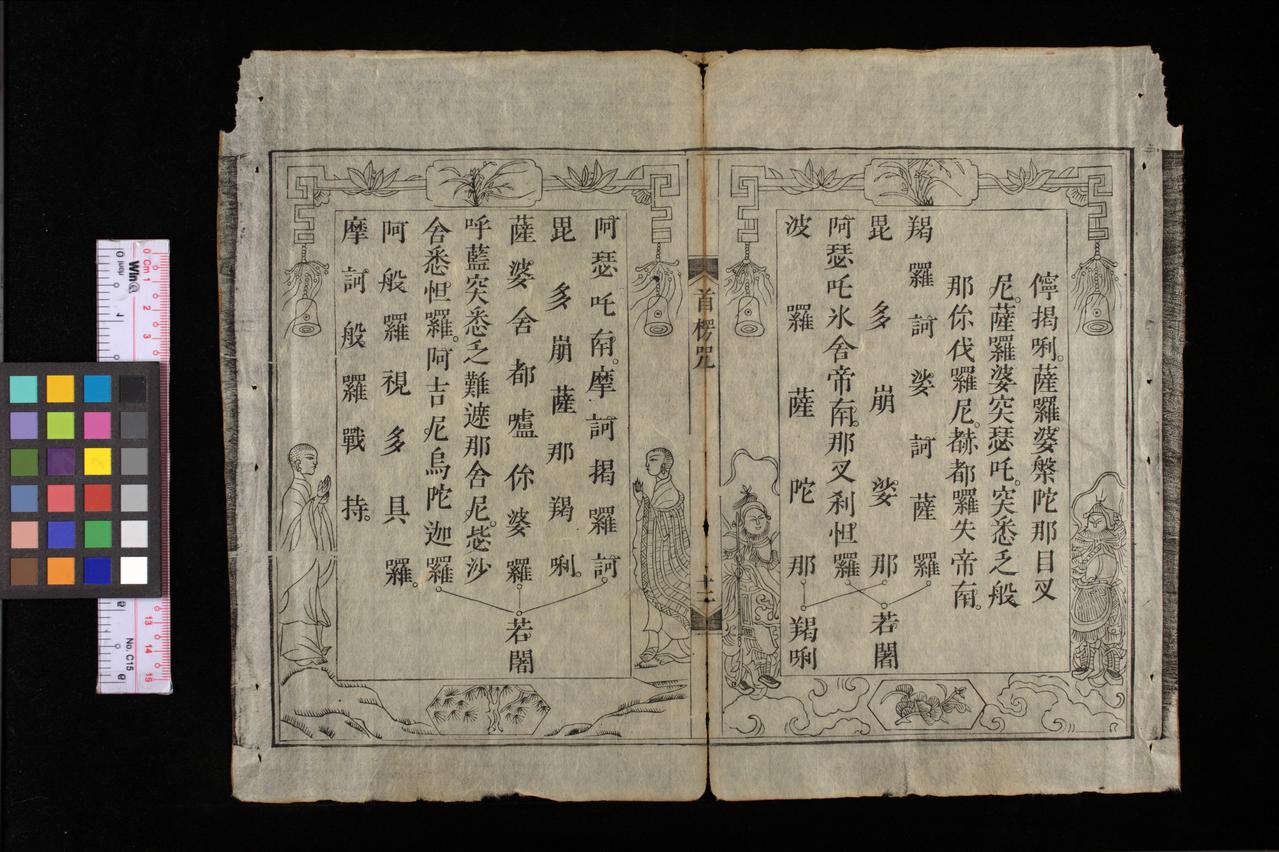 儜揭唎。薩羅婆槃陀那目叉
尼。薩羅婆突瑟吒。突悉乏般
那你伐㘕尼。赭都囉失帝南。
羯囉訶娑訶薩囉
毘多崩娑那
若闍
阿瑟吒氷舍帝南。那叉剎怛囉
波囉薩陀那
羯唎
首楞咒
十二
阿瑟吒南。摩訶揭囉訶
毘多崩薩那羯唎。
薩婆舍都嚧你婆囉
若闍
呼藍突悉乏難遮那舍尼。毖沙
舍悉怛囉。阿吉尼烏陀迦囉
阿般囉視多具囉。
摩訶般囉戰持。
Win
Cm 1
2
3
13
14
15
No. C15